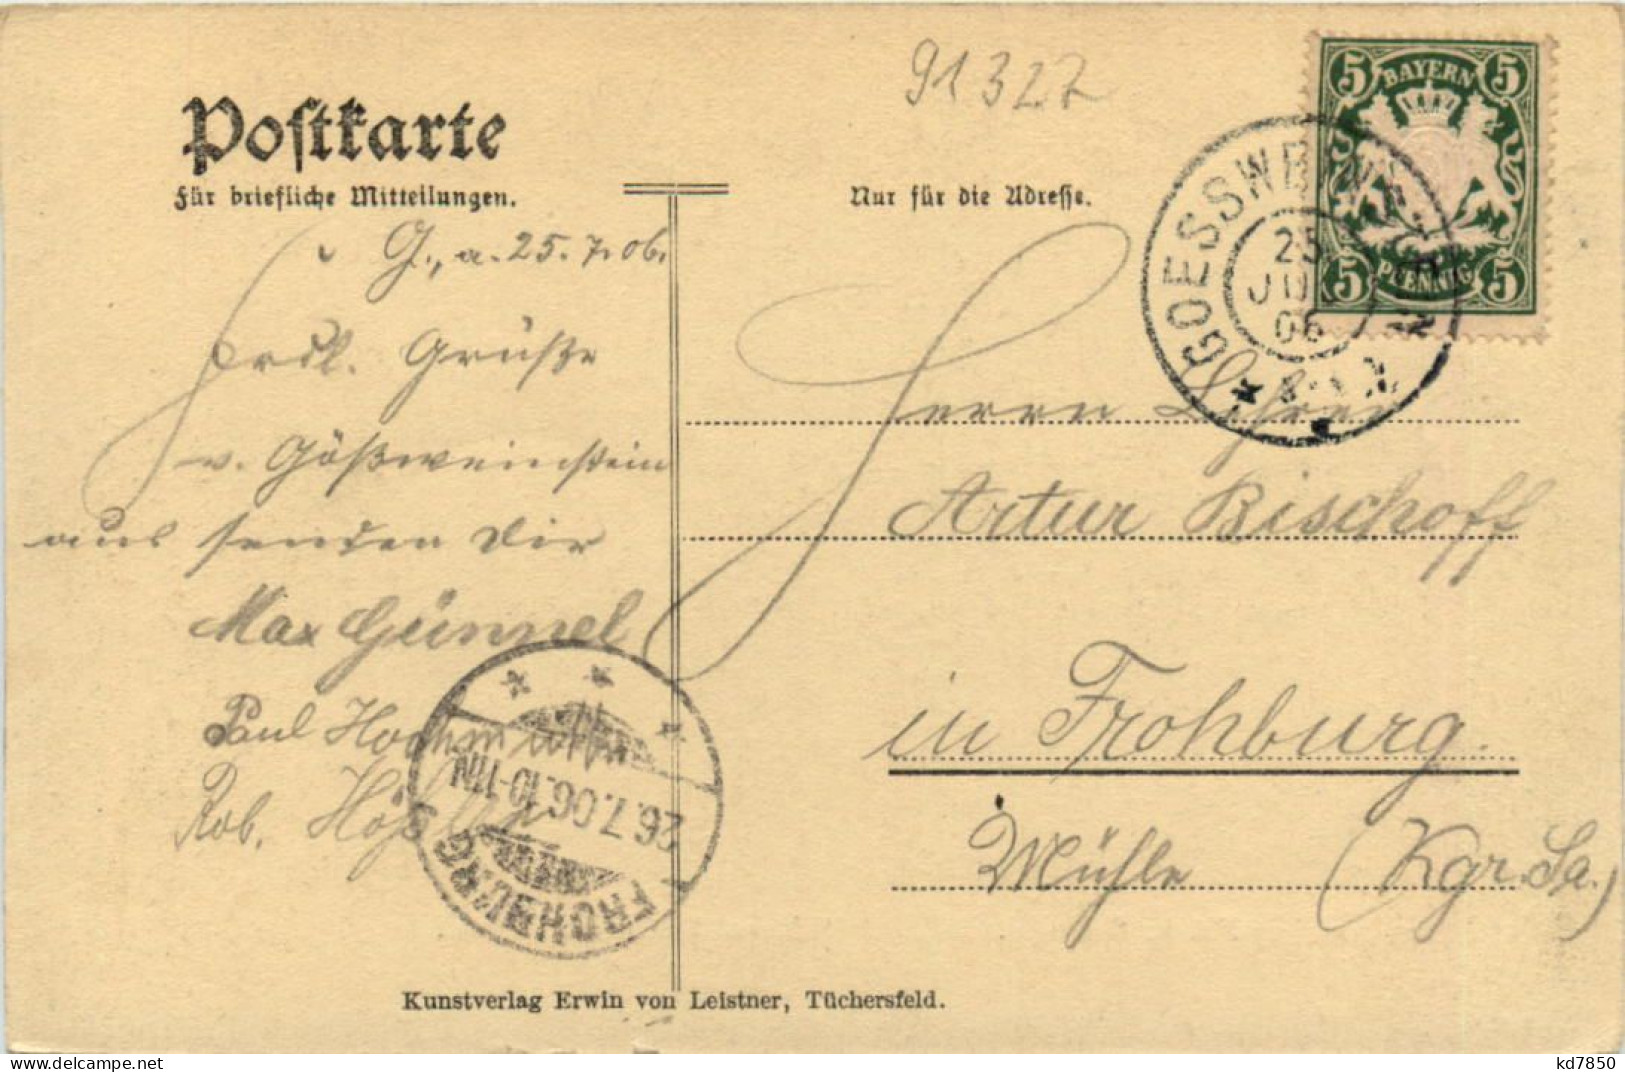 91327
Postkarte
Für briefliche Mitteilungen.
Nur für die Adresse.
BAYERN
5 5
5 PFENNIG 5
GOESSWEINST
25
JUL
06
G., a. 25.7.06.
Hrzl. Grüße
v. Gößweinstein
aus senden Dir
Max Günnel
Paul
Rob.
Herrn Lehrer
Artur Bischoff
in Frohburg.
Mühle (Kgr. Sa.)
FROHBURG
26.7.06.10-11N
Kunstverlag Erwin von Leistner, Tüchersfeld.
www.delcampe.net
kd7850